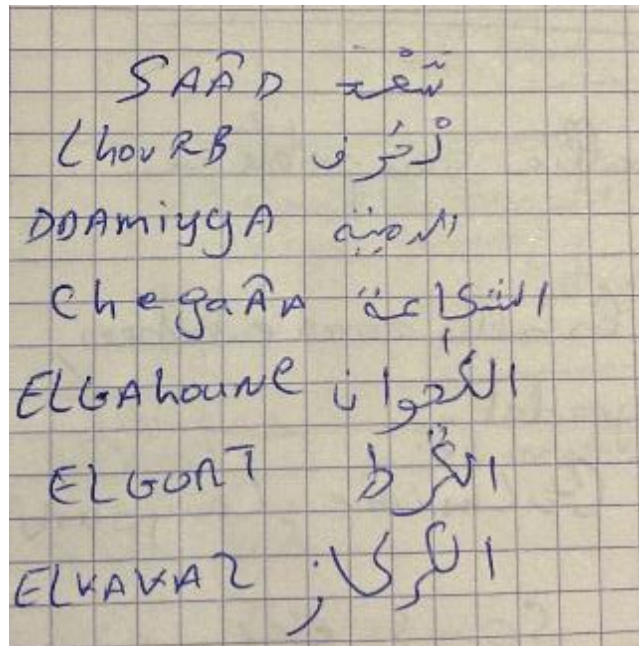 SAÂD سَعْد
LhouRB لْخُرف
DDAMiyyA الدمية
ChegaÂA الشكاعة
ELGAhouNe الكَحوان
ELGORT الكُرط
ELKAKAZ الكركاز